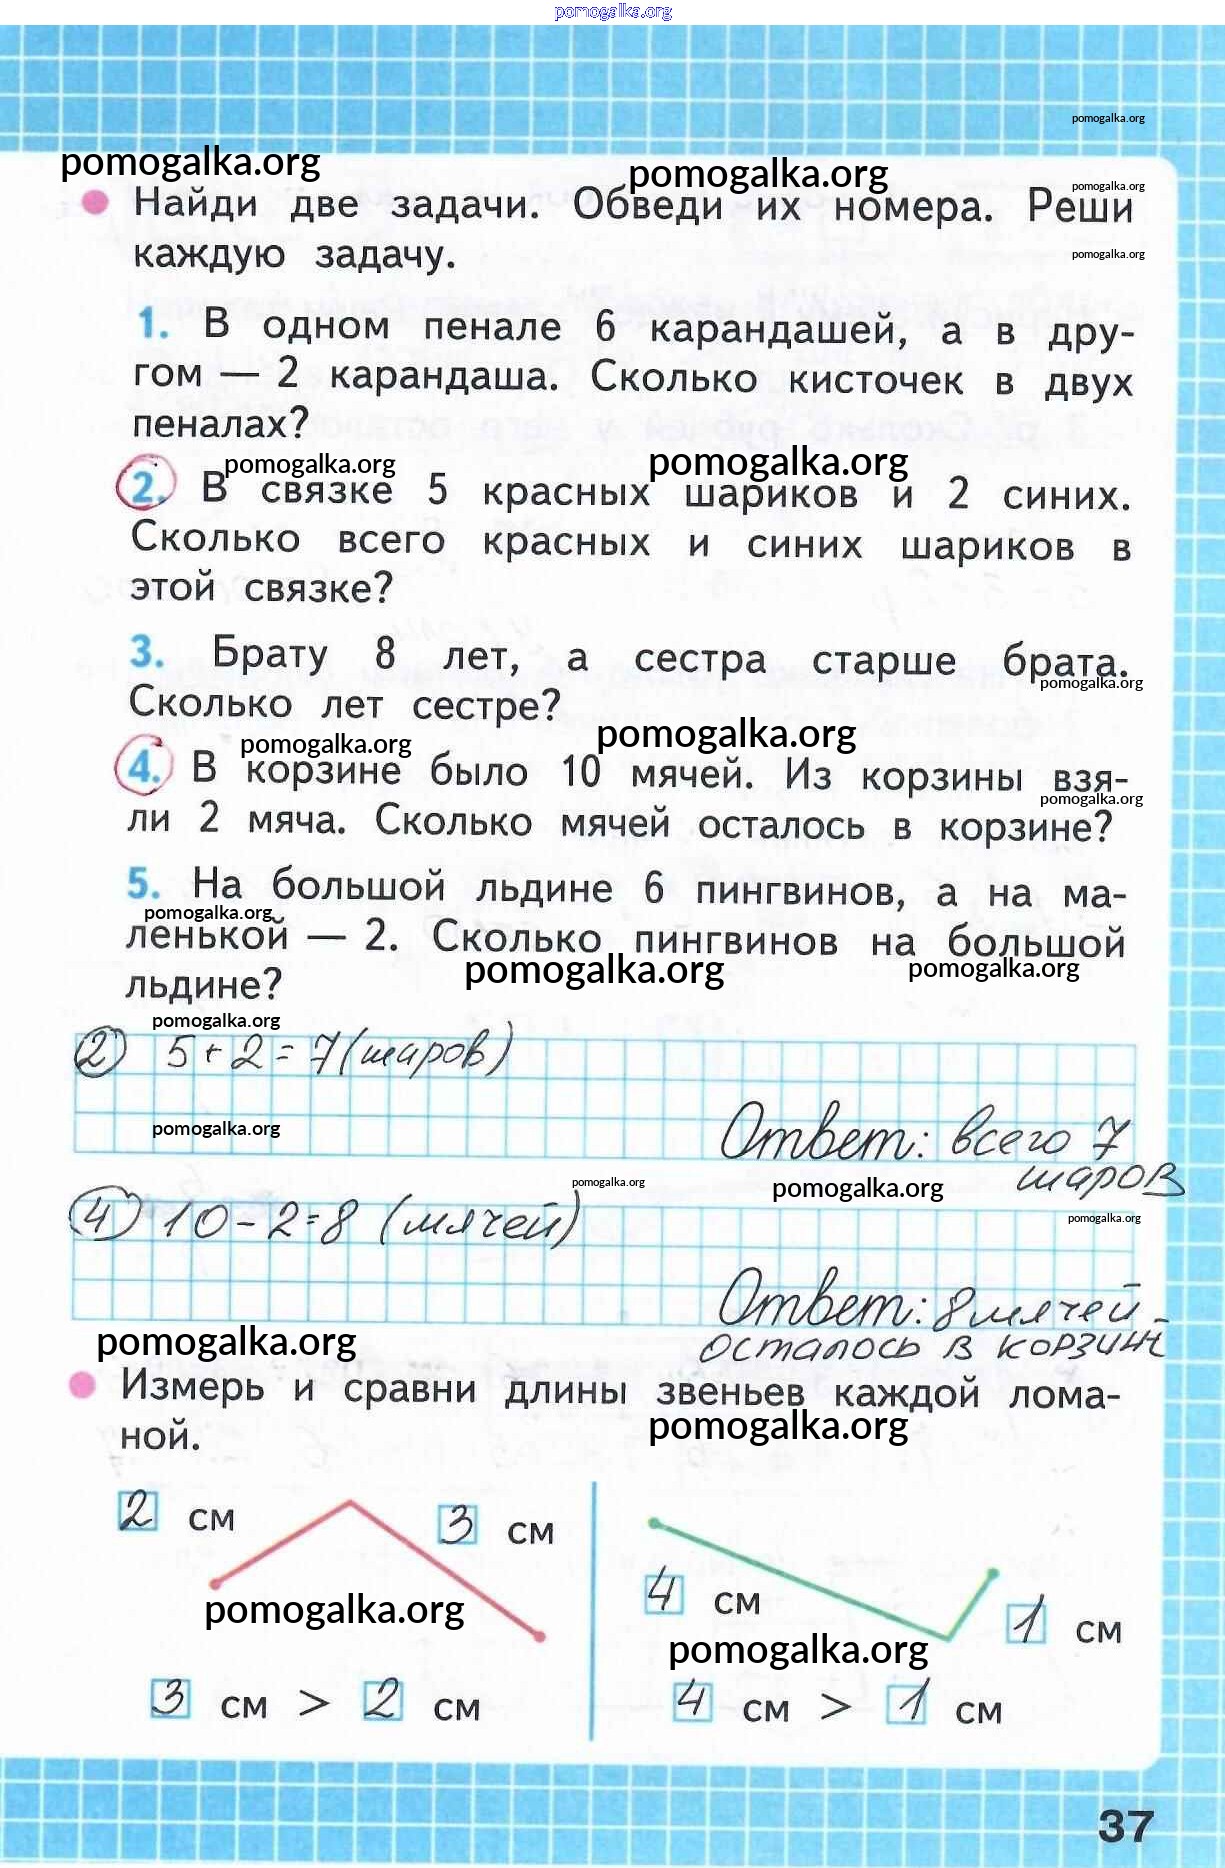 pomogalka.org
pomogalka.org
pomogalka.org
pomogalka.org
pomogalka.org
Найди две задачи. Обведи их номера. Реши
pomogalka.org
каждую задачу.
1. В одном пенале 6 карандашей, а в дру-
гом — 2 карандаша. Сколько кисточек в двух
пеналах?
pomogalka.org
pomogalka.org
2. В связке 5 красных шариков и 2 синих.
Сколько всего красных и синих шариков в
этой связке?
3. Брату 8 лет, а сестра старше брата.
pomogalka.org
Сколько лет сестре?
pomogalka.org
pomogalka.org
4. В корзине было 10 мячей. Из корзины взя-
pomogalka.org
ли 2 мяча. Сколько мячей осталось в корзине?
5. На большой льдине 6 пингвинов, а на ма-
pomogalka.org
ленькой — 2. Сколько пингвинов на большой
pomogalka.org
pomogalka.org
льдине?
pomogalka.org
2) 5+2=7(шаров)
pomogalka.org
Ответ: всего 7
шаров
pomogalka.org
pomogalka.org
4) 10-2=8 (мячей)
pomogalka.org
Ответ: 8 мячей
осталось в корзин
pomogalka.org
Измерь и сравни длины звеньев каждой лома-
ной.
pomogalka.org
2 см
3 см
pomogalka.org
3 см > 2 см
4 см
1 см
pomogalka.org
4 см > 1 см
37